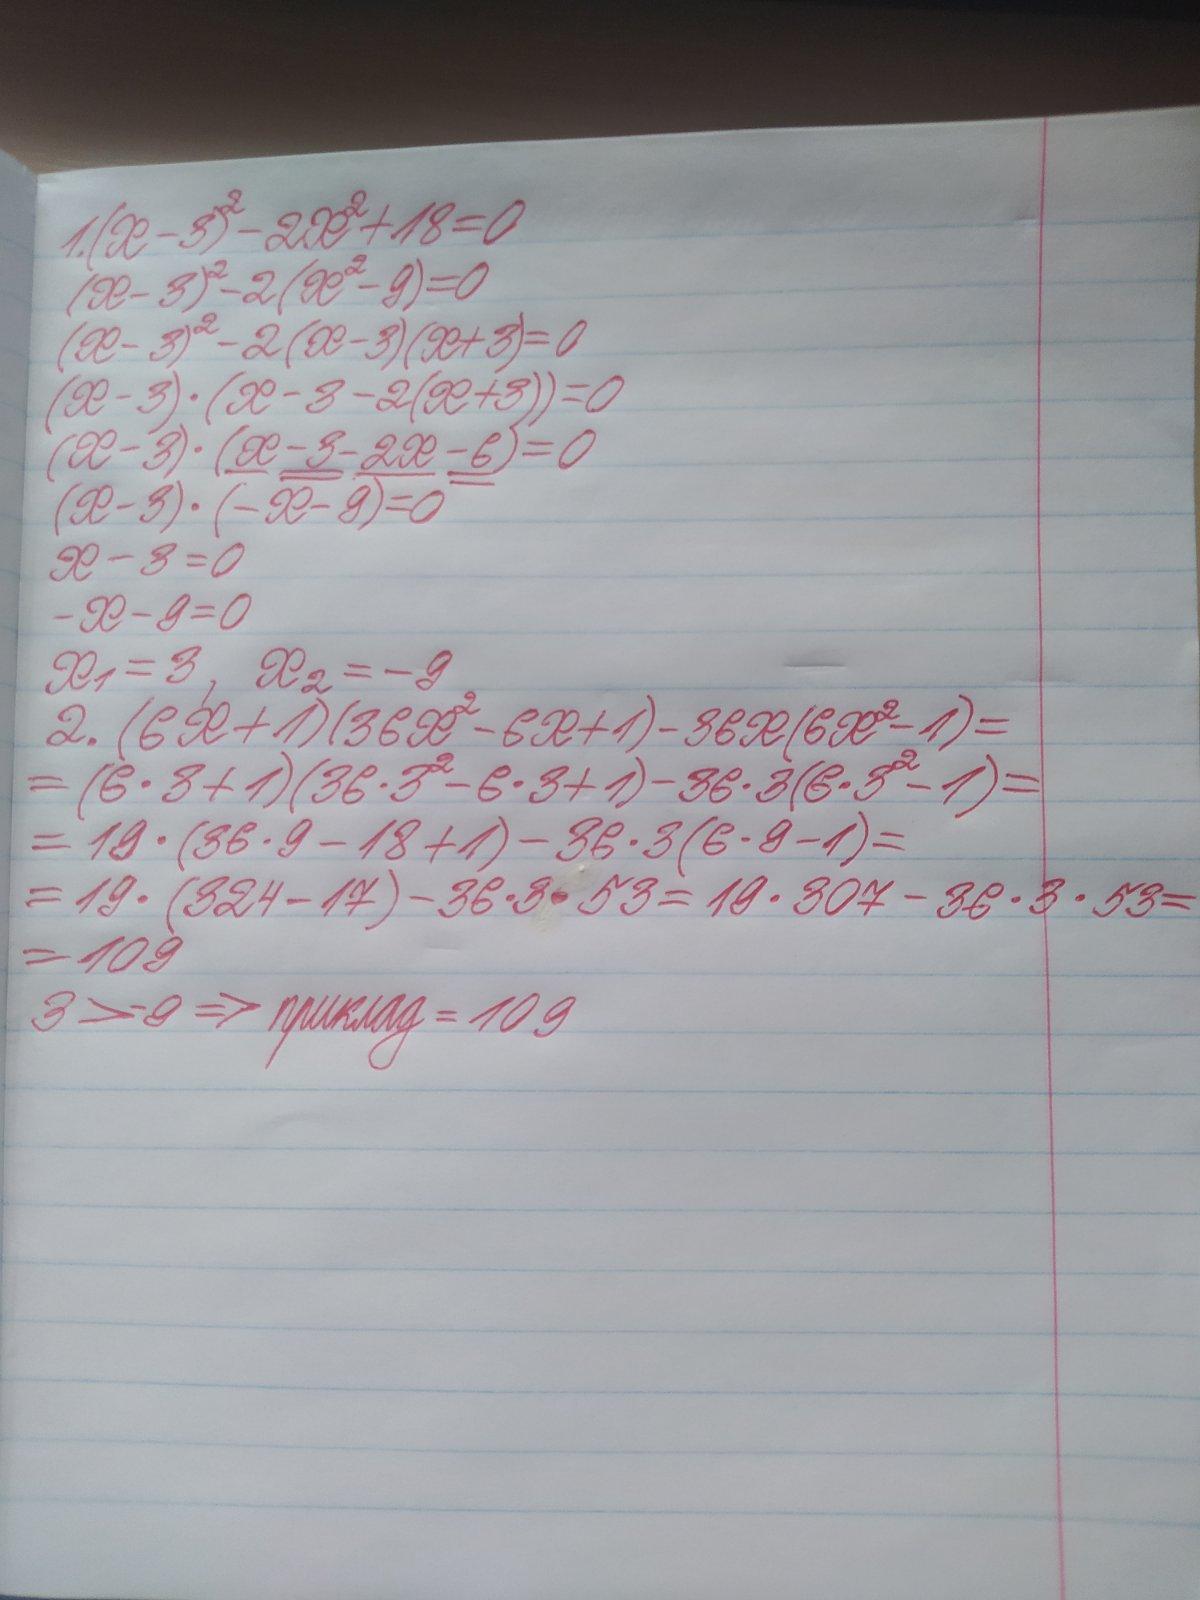 1.(x-3)²-2x²+18=0
(x-3)²-2(x²-9)=0
(x-3)²-2(x-3)(x+3)=0
(x-3)·(x-3-2(x+3))=0
(x-3)·(x-3-2x-6)=0
(x-3)·(-x-9)=0
x-3=0
-x-9=0
x₁=3, x₂=-9
2. (6x+1)(36x²-6x+1)-36x(6x²-1)=
=(6·3+1)(36·3²-6·3+1)-36·3(6·3²-1)=
=19·(36·9-18+1)-36·3(6·9-1)=
=19·(324-17)-36·3·53=19·307-36·3·53=
=109
3>-9=> приклад=109